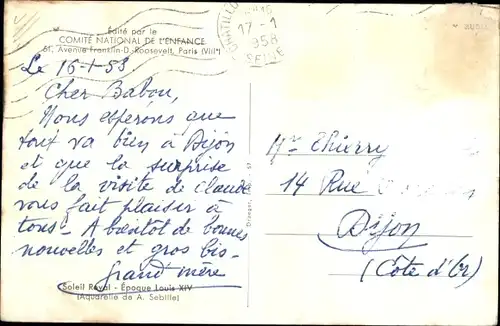 Edité par le
COMITÉ NATIONAL DE L'ENFANCE
51, Avenue Franklin-D.-Roosevelt, Paris (VIIIe)
17-1
1958
SEINE
Le 16-1-58
Cher Babou,
Nous espérons que
tout va bien à Dijon
et que la surprise
de la visite de Claude
vous fait plaisir à
tous- A bientôt de bonnes
nouvelles et gros bis-
grand'mère
Soleil Royal - Époque Louis XIV
(Aquarelle de A. Sébille)
Mr Thierry
14 Rue
Dijon
(Côte d'Or)